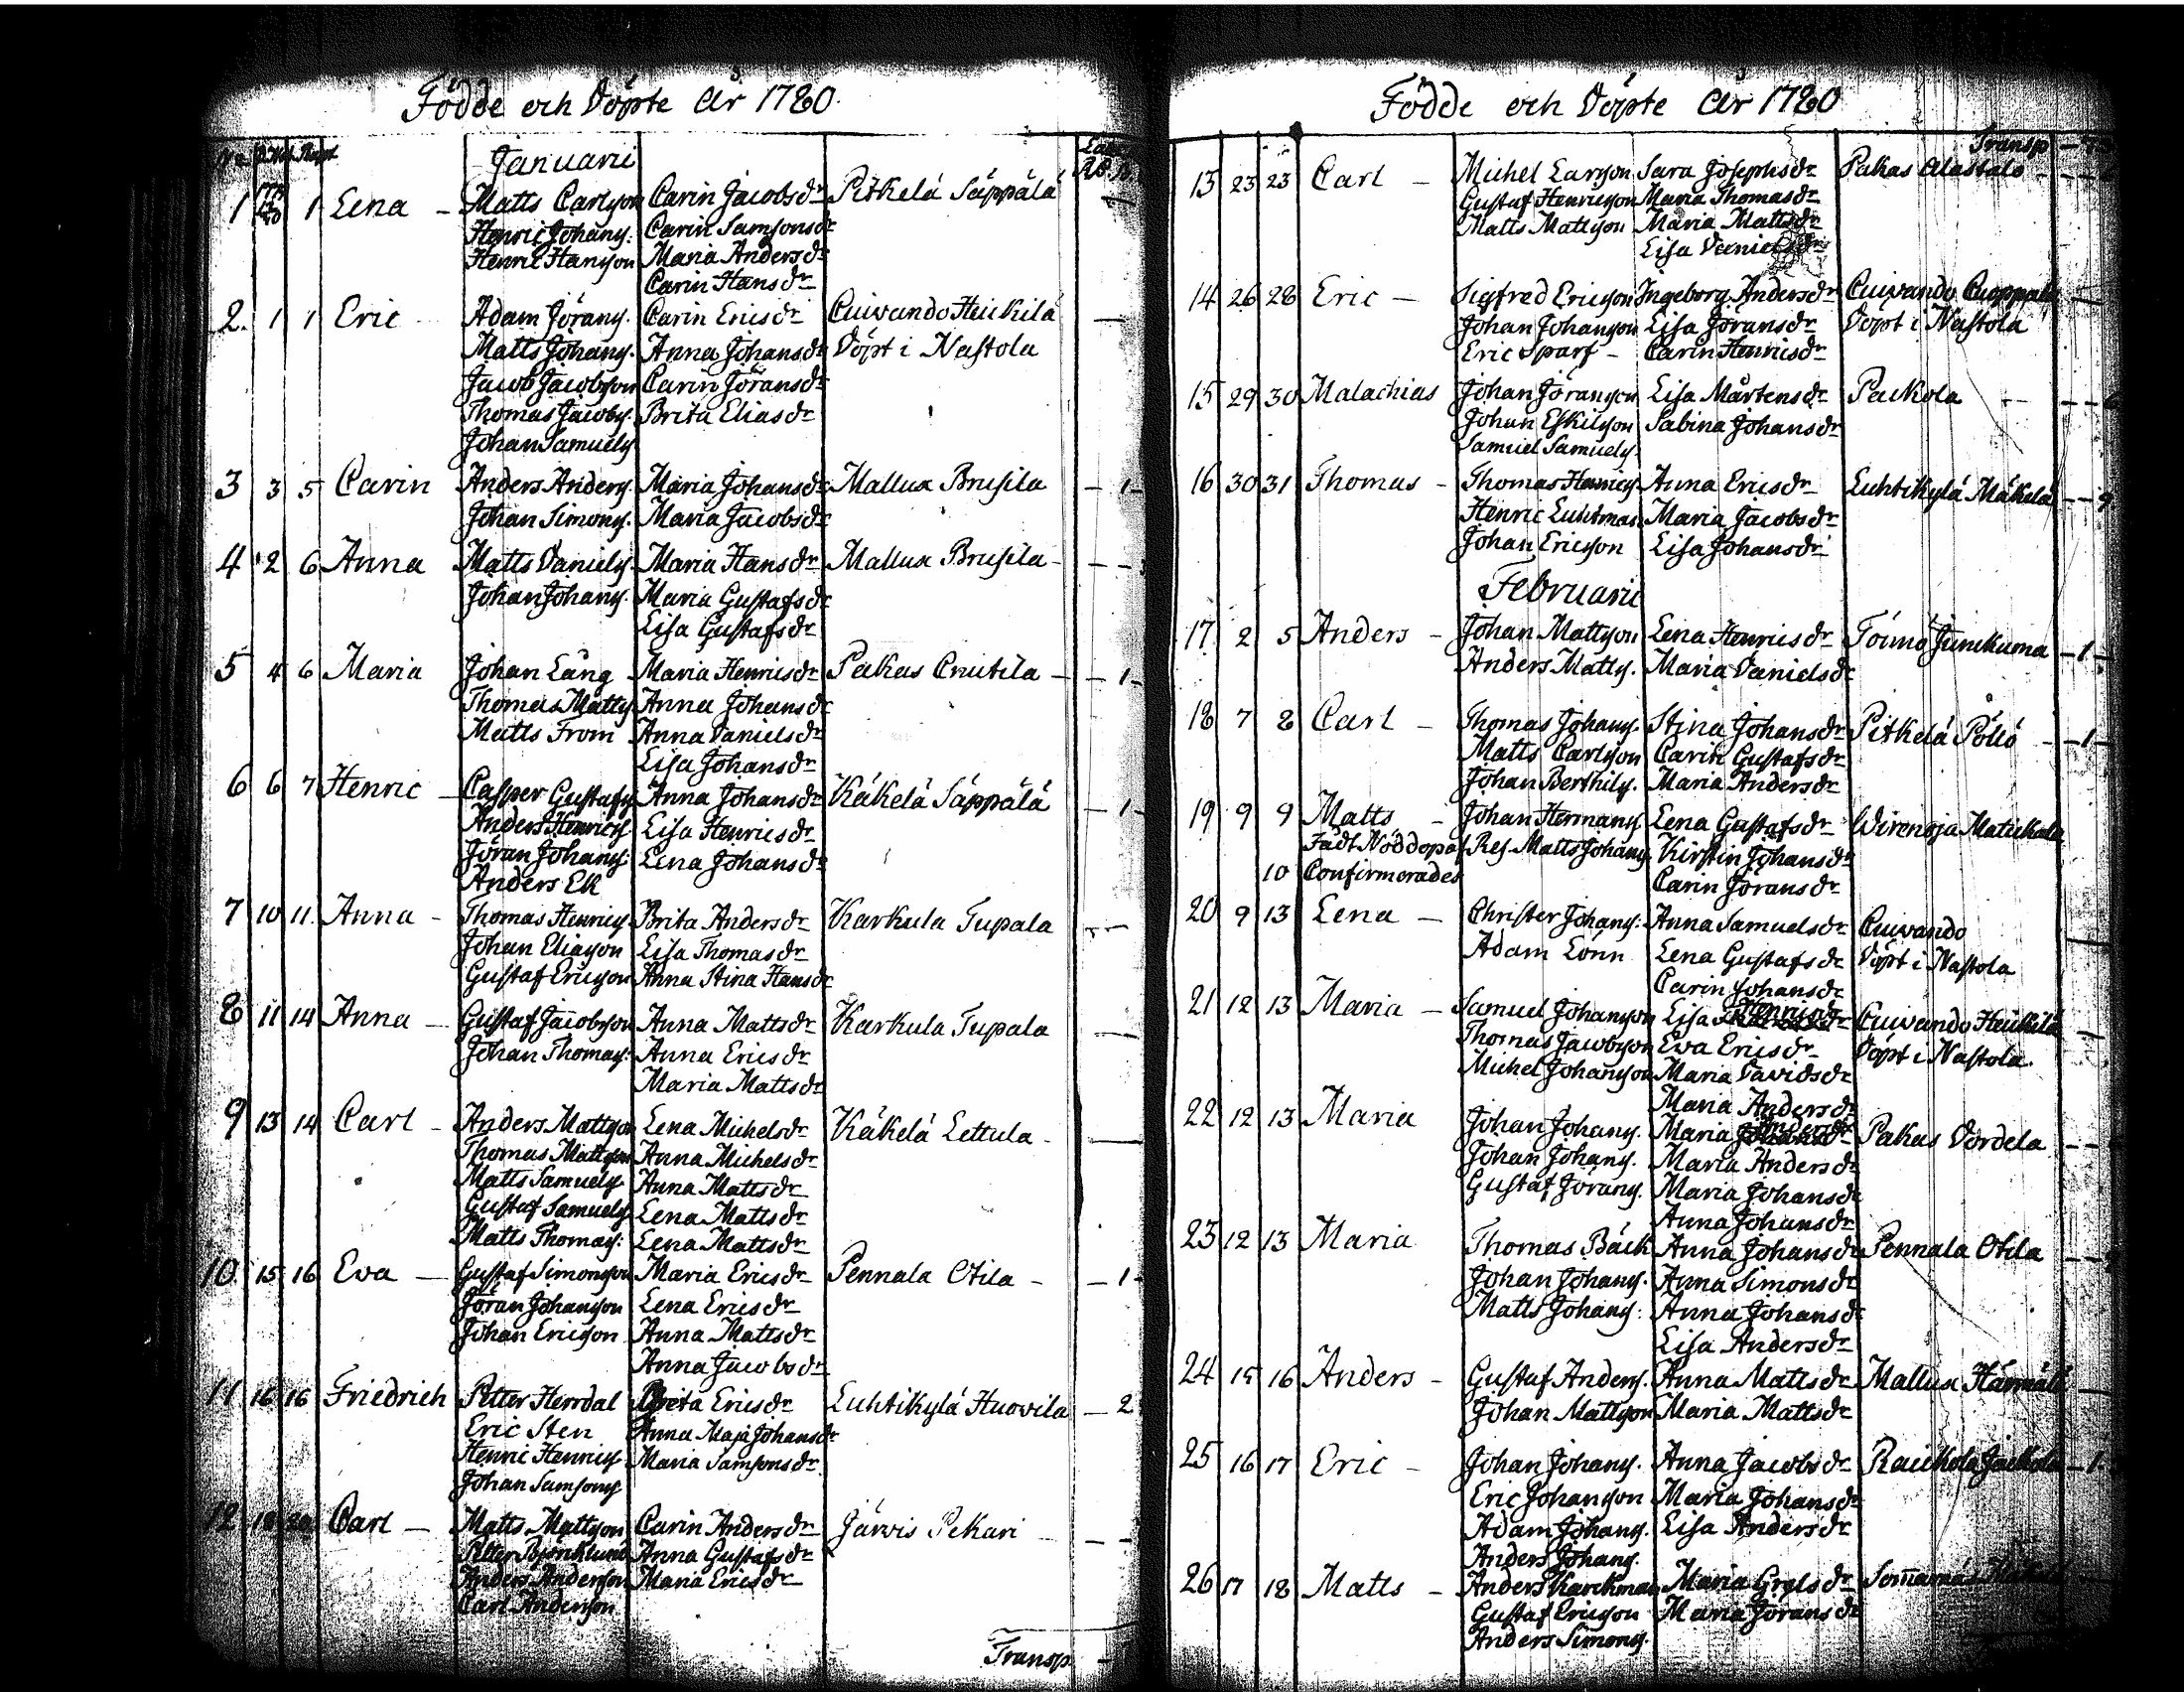 Födde och Döpte År 1780.
Januarii
1 1 Lena – Matts Carlsson Carin Jacobsdr Pitkelä Säppälä
Henric Johanss. Carin Samsonsdr
Henric Hansson Maria Andersdr
Carin Hansdr
2. 1 1 Eric Adam Jöranss. Carin Ericsdr Cuivando Heickilä
Matts Johanss. Anna Johansdr Döpt i Nastola
Jacob Jacobsson Carin Jöransdr
Thomas Jacobss. Brita Eliasdr
Johan Samuelss
3 3 5 Carin Anders Anderss. Maria Johansdr Mallusa Brusila – 1 –
Johan Simonss. Maria Jacobsdr
4 2 6 Anna Matts Danielss. Maria Hansdr Mallusa Brusila –
Johan Johanss. Maria Gustafsdr
Lisa Gustafsdr
5 4 6 Maria Johan Lång Maria Henricsdr Pakas Cnutila – 1 –
Thomas Mattss Anna Johansdr
Matts From Anna Danielsdr
Lisa Johansdr
6 6 7 Henric – Casper Gustafss Anna Johansdr Käkelä Säppälä – 1 –
Anders Henricss Lisa Henricsdr
Jöran Johanss. Lena Johansdr
Anders Ek
7 10 11. Anna – Thomas Henricss Brita Andersdr Karkula Tupala
Johan Eliasson Lisa Thomasdr
Gustaf Ericsson Anna Stina Hansdr
8 11 14 Anna – Gustaf Jacobsson Anna Mattsdr Karkula Tupala
Johan Thomass: Anna Ericsdr
Maria Mattsdr
9 13 14 Carl – Anders Mattsson Lena Michelsdr Käkelä Lettula –
Thomas Mattsson Anna Michelsdr
Matts Samuelss. Anna Mattsdr
Gustaf Samuelss Lena Mattsdr
Matts Thomass: Lena Mattsdr
10. 15 16 Eva – Gustaf Simonsson Maria Ericsdr Pennala Otila – – 1 –
Jöran Johansson Lena Ericsdr
Johan Ericsson Anna Mattsdr
Anna Jacobsdr
11 16 16 Friedrich Petter Herrdal Brita Ericsdr Luhtikylä Huovila – 2
Eric Sten Anna Maja Johansdr
Henric Henricss Maria Samsonsdr
Johan Samsonss
12 Carl – Matts Mattsson Carin Andersdr Järvis Pekari
Petter Björklund Anna Gustafsdr
Anders Andersson Maria Ericsdr
Carl Andersson
Transp. –
Födde och Döpte År 1780
Transp –
13 23 23 Carl – Michel Larsson Sara Josephsdr Pakas Alastalo
Gustaf Henricsson Maria Thomasdr
Matts Mattsson Maria Mattsdr
Lisa Danielsdr
14 26 28 Eric – Sigfred Ericsson Ingeborg Andersdr Cuivando Cuoppala
Johan Johansson Lisa Jöransdr Döpt i Nastola
Eric Sparf – Carin Henricsdr
15 29 30 Malachias Johan Jöransson Lisa Mårtensdr Packola
Johan Eskilsson Sabina Johansdr
Samuel Samuelss.
16 30 31 Thomas – Thomas Henricss Anna Ericsdr Luhtikylä Mäkelä
Henric Luhtman Maria Jacobsdr
Johan Ericsson Lisa Johansdr
Februarii
17 2 5 Anders – Johan Mattsson Lena Henricsdr Töunö Junickuma – 1 –
Anders Mattss. Maria Danielsdr
18 7 8 Carl – Thomas Johanss. Stina Johansdr Pitkelä Pöllö – 1 –
Matts Carlsson Carin Gustafsdr
Johan Berthilss. Maria Andersdr
19 9 9 Matts – Johan Hermanss Lena Gustafsdr Wirenoja Matickala
Fådt Nöddopaf Res. Matts Johanss. Kirstin Johansdr
10 Confirmerades Carin Jöransdr
20 9 13 Lena – Christer Johanss: Anna Samuelsdr Cuivando
Adam Lönn Lena Gustafsdr Döpt i Nastola
Carin Johansdr
21 12 13 Maria – Samuel Johansson Lisa Henricsdr Cuivando Heickilä
Thomas Jacobsson Eva Ericsdr Döpt i Nastola.
Michel Johansson Maria Davidsdr
Maria Andersdr
22 12 13 Maria Johan Johanss. Maria Andersdr Pakas Dordela
Johan Johanss. Maria Andersdr
Gustaf Jöranss. Maria Johansdr
Anna Johansdr
23 12 13 Maria Thomas Bäck Anna Johansdr Pennala Otila
Johan Johanss. Anna Simonsdr
Matts Johanss: Anna Johansdr
Lisa Andersdr
24 15 16 Anders – Gustaf Anderss. Anna Mattsdr Mallusa
Johan Mattsson Maria Mattsdr
25 16 17 Eric – Johan Johanss. Anna Jacobsdr Raickola – 1 –
Eric Johansson Maria Johansdr
Adam Johanss. Lisa Andersdr
Anders Johanss.
26 17 18 Matts – Anders Karckman Maria Grelsdr
Gustaf Ericsson Maria Jöransdr
Anders Simonss.